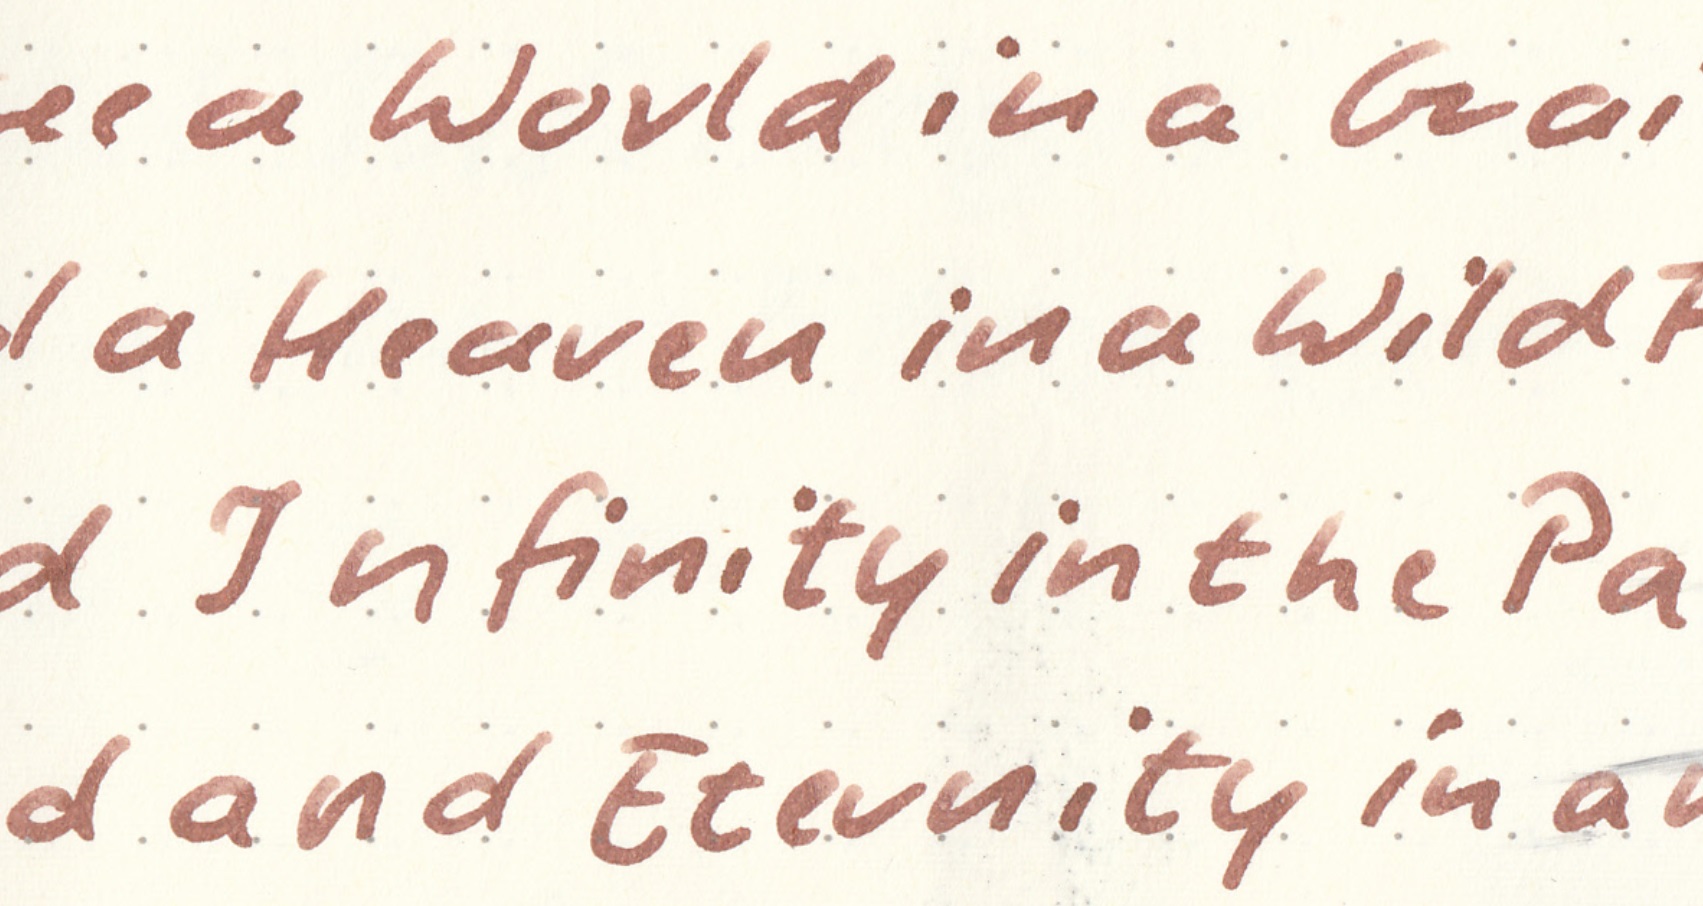 ee a World in a Grai
d a Heaven in a Wild F
d Infinity in the Pa
d and Eternity in an